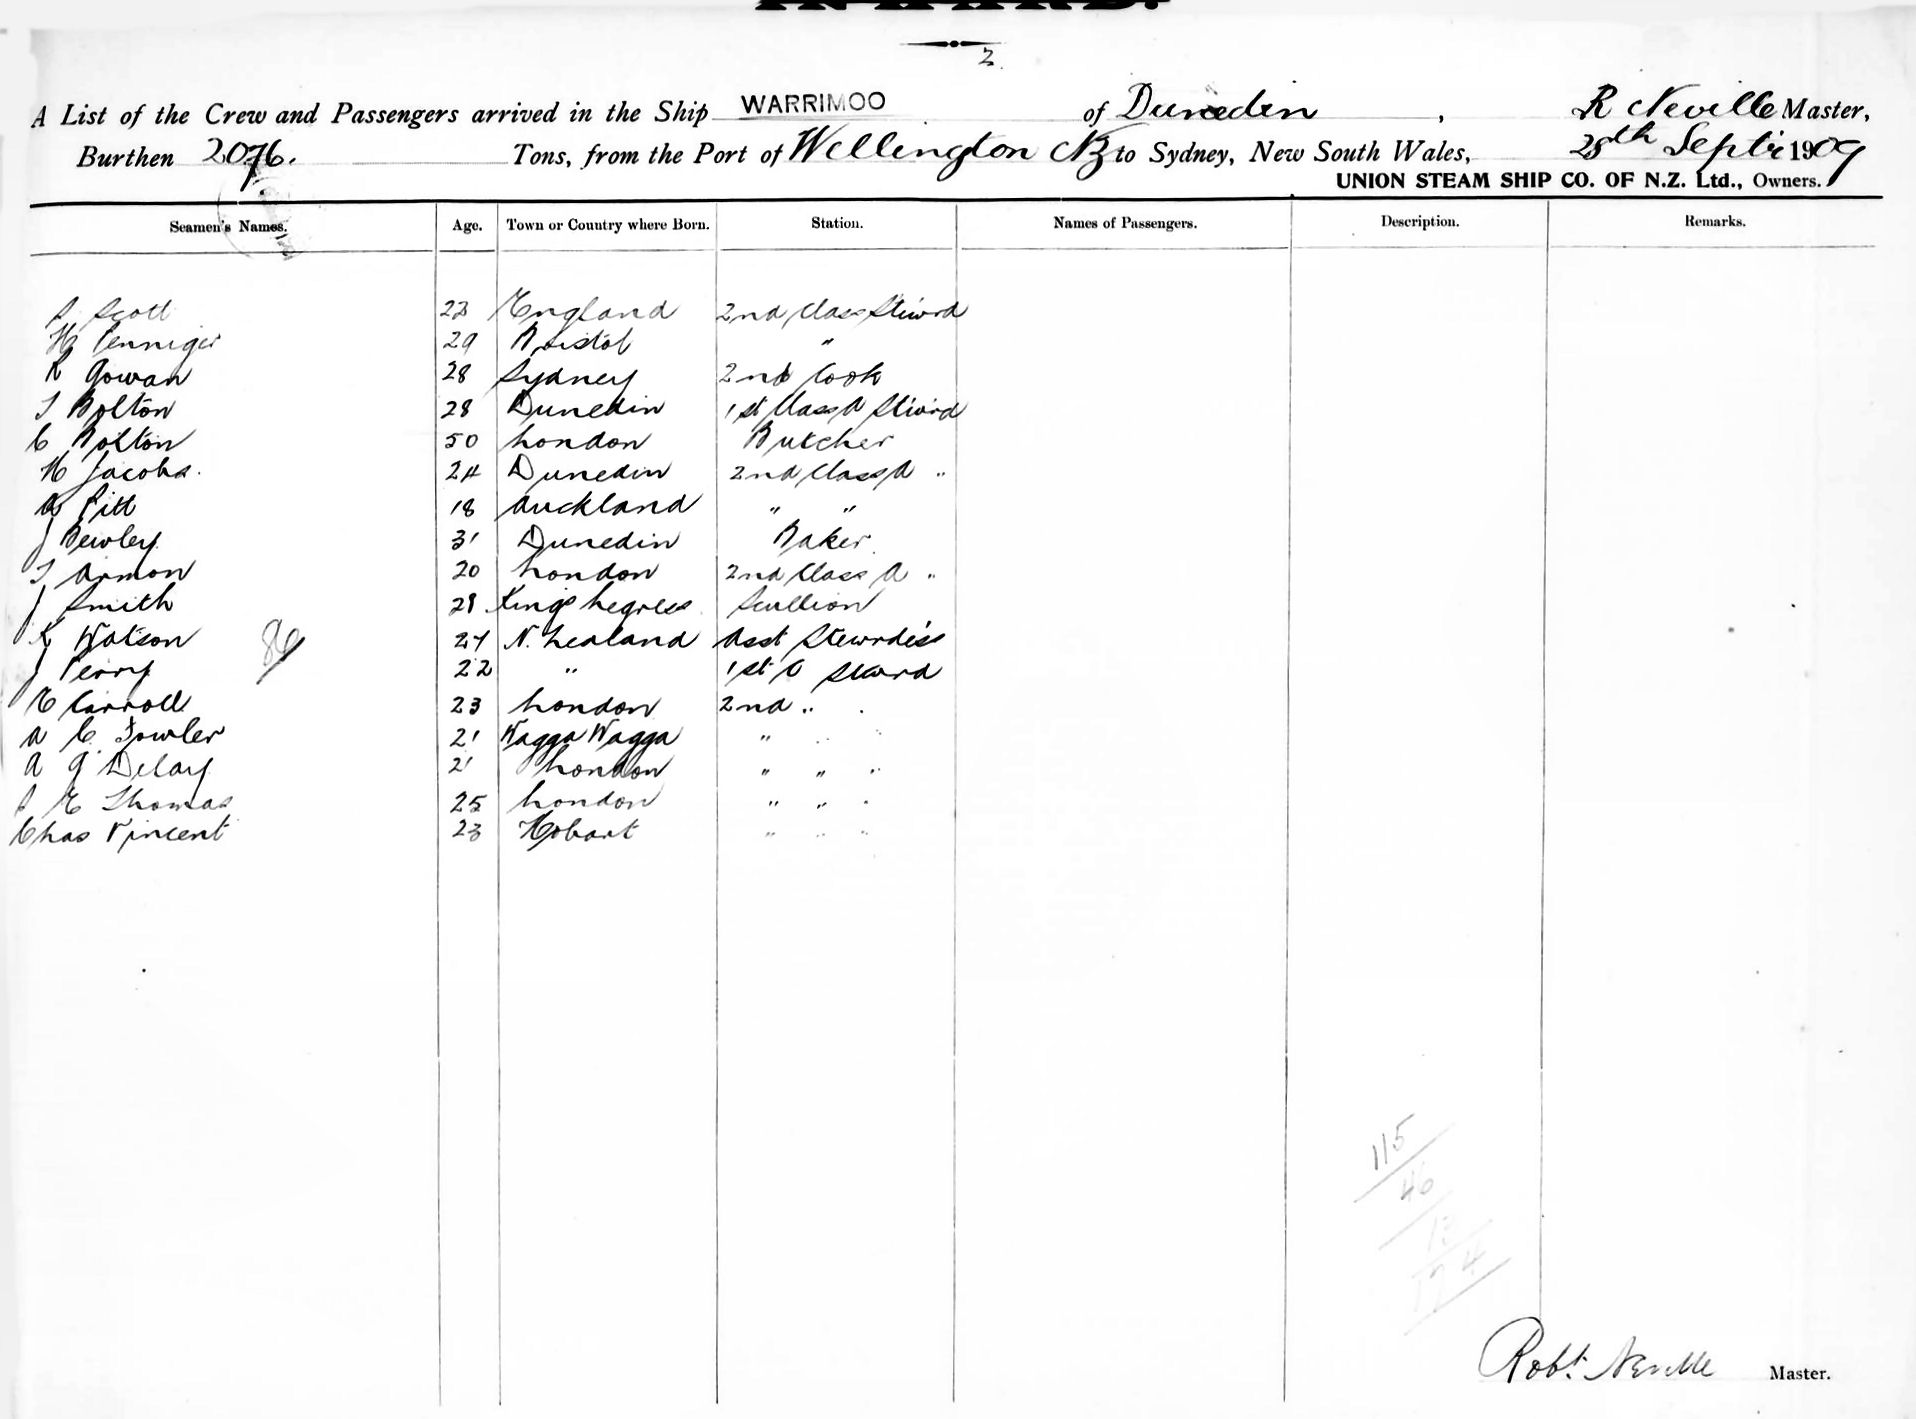 INWARD.
2
A List of the Crew and Passengers arrived in the Ship WARRIMOO of Dunedin, R Neville Master,
Burthen 2076. Tons, from the Port of Wellington NZ to Sydney, New South Wales, 28th Septr 1909
UNION STEAM SHIP CO. OF N.Z. Ltd., Owners.
Seamen's Names. Age. Town or Country where Born. Station. Names of Passengers. Description. Remarks.
Scott 23 England 2nd Class Steward
H 29 Bristol "
R Gowan 28 Sydney 2nd Cook
T Bolton 28 Dunedin 1st Class A Steward
C Bolton 50 London Butcher
H Jacobs. 24 Dunedin 2nd Class A "
A Pitt 18 Auckland " "
J Bewley 31 Dunedin Baker
T Armon 20 London 2nd Class A "
J Smith 28 Kings Scullion
K Watson 27 N. Zealand Asst Stewrdess
86
J Perry 22 " 1st A Steward
C Carroll 23 London 2nd " "
A C Fowler 21 Wagga Wagga " " "
A G Delay 21 London " " "
E Thomas 25 London " " "
Chas Vincent 23 Hobart " " "
115
46
13
174
Robt. Neville Master.